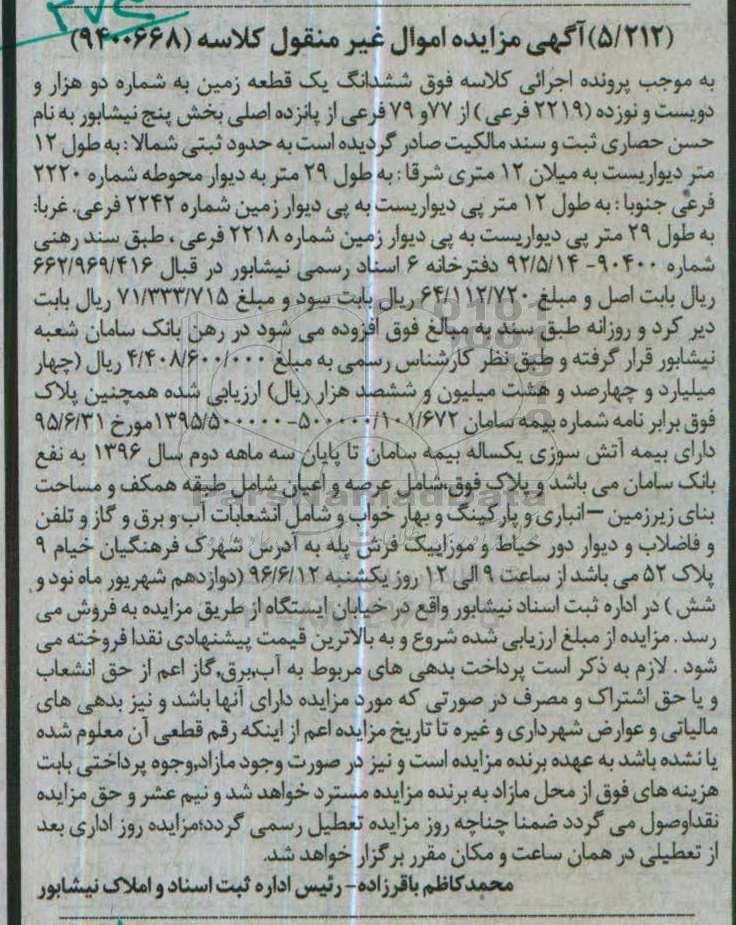 (۵/۲۱۲)آگهی مزایده اموال غیر منقول کلاسه (۹۴۰۰۶۶۸)
به موجب پرونده اجرائی کلاسه فوق ششدانگ یک قطعه زمین به شماره دو هزار و
دویست و نوزده (۲۲۱۹ فرعی ) از ۷۷و ۷۹ فرعی از پانزده اصلی بخش پنج نیشابور به نام
حسن حصاری ثبت و سند مالکیت صادر گردیده است به حدود ثبتی شمالا : به طول ۱۲
متر دیواریست به میلان ۱۲ متری شرقا : به طول ۲۹ متر به دیوار محوطه شماره ۲۲۲۰
فرعی جنوبا : به طول ۱۲ متر پی دیواریست به پی دیوار زمین شماره ۲۲۴۲ فرعی. غربا:
به طول ۲۹ متر پی دیواریست به پی دیوار زمین شماره ۲۲۱۸ فرعی ، طبق سند رهنی
شماره ۹۰۴۰۰- ۹۲/۵/۱۴ دفترخانه ۶ اسناد رسمی نیشابور در قبال ۶۶۲/۹۶۹/۴۱۶
ریال بابت اصل و مبلغ ۶۴/۱۱۲/۷۲۰ ریال بابت سود و مبلغ ۷۱/۳۳۳/۷۱۵ ریال بابت
دیر کرد و روزانه طبق سند به مبالغ فوق افزوده می شود در رهن بانک سامان شعبه
نیشابور قرار گرفته و طبق نظر کارشناس رسمی به مبلغ ۴/۴۰۸/۶۰۰/۰۰۰ ریال (چهار
میلیارد و چهارصد و هشت میلیون و ششصد هزار ریال) ارزیابی شده همچنین پلاک
فوق برابر نامه شماره بیمه سامان ۵۰۰۰۰۰/۱۰۱/۶۷۲-۱۳۹۵/۵۰۰۰۰۰مورخ ۹۵/۶/۳۱
دارای بیمه آتش سوزی یکساله بیمه سامان تا پایان سه ماهه دوم سال ۱۳۹۶ به نفع
بانک سامان می باشد و پلاک فوق شامل عرصه و اعیان شامل طبقه همکف و مساحت
بنای زیرزمین –انباری و پارکینگ و بهار خواب و شامل انشعابات آب و برق و گاز و تلفن
و فاضلاب و دیوار دور حیاط و موزاییک فرش پله به آدرس شهرک فرهنگیان خیام ۹
پلاک ۵۲ می باشد از ساعت ۹ الی ۱۲ روز یکشنبه ۹۶/۶/۱۲ (دوازدهم شهریور ماه نود و
شش ) در اداره ثبت اسناد نیشابور واقع در خیابان ایستگاه از طریق مزایده به فروش می
رسد . مزایده از مبلغ ارزیابی شده شروع و به بالاترین قیمت پیشنهادی نقدا فروخته می
شود . لازم به ذکر است پرداخت بدهی های مربوط به آب,برق,گاز اعم از حق انشعاب
و یا حق اشتراک و مصرف در صورتی که مورد مزایده دارای آنها باشد و نیز بدهی های
مالیاتی و عوارض شهرداری و غیره تا تاریخ مزایده اعم از اینکه رقم قطعی آن معلوم شده
یا نشده باشد به عهده برنده مزایده است و نیز در صورت وجود مازاد,وجوه پرداختی بابت
هزینه های فوق از محل مازاد به برنده مزایده مسترد خواهد شد و نیم عشر و حق مزایده
نقداوصول می گردد ضمنا چناچه روز مزایده تعطیل رسمی گردد؛مزایده روز اداری بعد
از تعطیلی در همان ساعت و مکان مقرر برگزار خواهد شد.
محمدکاظم باقرزاده- رئیس اداره ثبت اسناد و املاک نیشابور